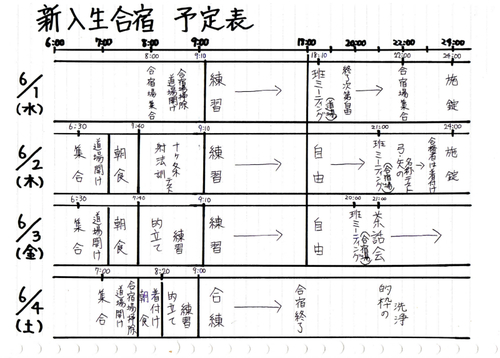 新入生合宿 予定表
6:00 7:00 8:00 9:00 18:00 20:00 22:00 24:00
6/1(水)
8:00 9:10 18:10 22:00 24:00
合宿場集合
合宿場掃除
道場開け
練習
班ミーティング(道場)
終了次第自由
合宿場集合
施錠
6/2(木)
6:30 8:40 9:10 21:00 24:00
集合
道場開け
朝食
射法訓
テスト
練習
自由
班ミーティング(合宿場)
弓・矢の名称テスト
合格者は着付け
施錠
6/3(金)
6:30 8:40 9:10 20:00 21:00
集合
道場開け
朝食
的立て
練習
練習
自由
班ミーティング(合宿場)
茶話会
6/4(土)
7:00 8:20 9:00
集合
道場開け
合宿場掃除
朝食
着付け
的立て
練習
合練
合宿終了
的枠の洗浄